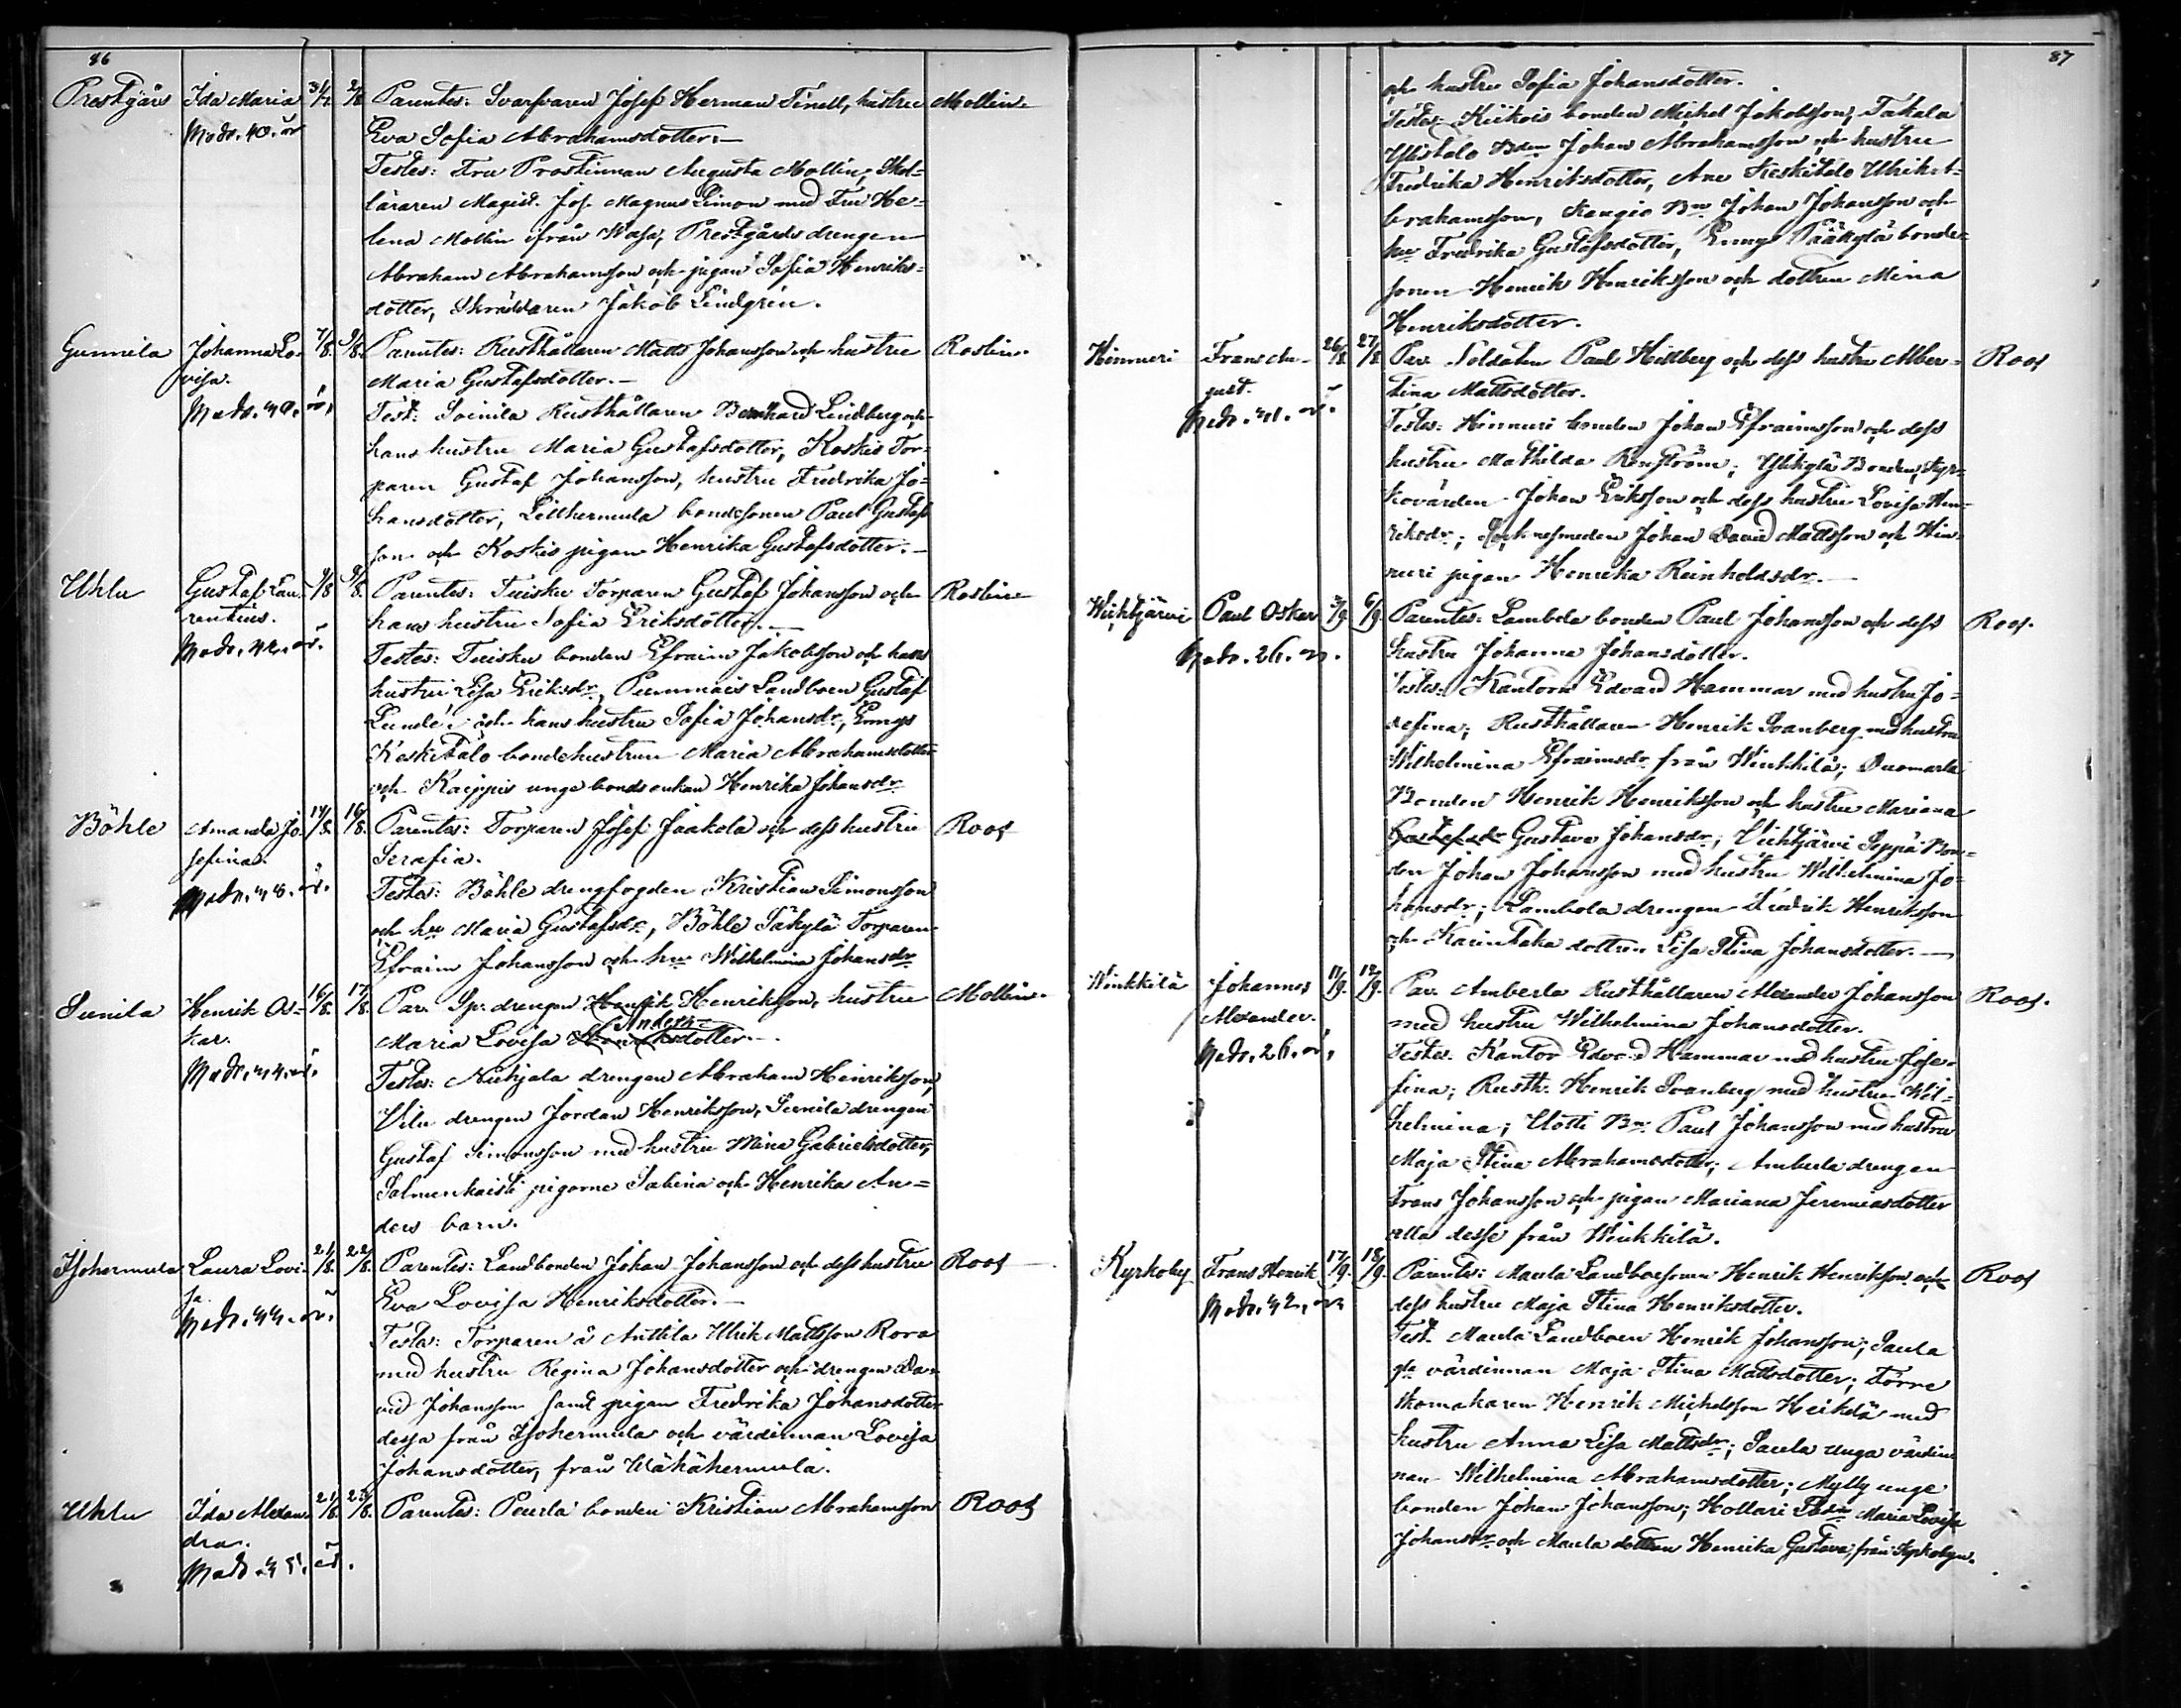 86
Prestgårs Ida Maria 31/7. 2/8. Parentes: Svarfvaren Josef Herman Tinell, hustru Mollin.
Modr. 40. år Eva Sofia Abrahamsdotter.—
Testes: Fru Prostinnan Augusta Mollin, Skol=
läraren Magist. Jos. Magnus Limon med Fru He=
lena Mollin ifrån Wasa, Prestgårds drengen
Abraham Abrahamsson och pigan Sofia Henriks=
dotter, Skräddaren Jakob Lindgrén.
Gunnila Johanna Lo- 7/8. 9/8. Parentes: Rusthållaren Matts Johansson och hustru Roslin.
visa. Maria Gustafsdotter.—
Modr. 40. år, Test: Soinila Rusthållaren Bernhard Lindberg och
hans hustru Maria Gustafsdotter, Koskis Tor=
paren Gustaf Johansson, hustru Fredrika Jo=
hansdotter, Lillhermula bondesonen Paul Gustafs
son och Koskis pigan Henrika Gustafsdotter.—
Uhlu Gustaf Lau- 9/8 9/8. Parentes: Tuisku Torparen Gustaf Johansson och Roslin
rentius. hans hustru Sofia Eriksdotter.—
Modr. 42. år. Testes: Tuisku bonden Efraim Jakobsson och hans
hustru Lisa Eriksdr, Pummais Landboen Gustaf
Lundé och hans hustru Sofia Johansdr, Ennys
Keskitalo bondehustrun Maria Abrahamsdotter
och Kaippis unge bonds enkan Henrika Johansdr
Böhle Amanda Jo- 14/8. 16/8. Parentes: Torparen Josef Jaakola och dess hustru Roos
sefina. Serafia.
Modr. 48. år. Testes: Böhle drengfogden Kristian Simonsson
och hu Maria Gustafsdr, Böhle Säkylä Torparen
Efraim Johansson och hu Wilhelmina Johansdr
Sunila Henrik Os= 16/8. 17/8. Par. Sp. drengen Henrik Henriksson, hustru Mollin.
kar. Anders-
Maria Lovisa Henriksdotter.—
Modr. 44. år. Testes: Nuhjala drengen Abraham Henriksson,
Vilu drengen Jordan Henriksson, Sunila drengen
Gustaf Simonsson med hustru Mina Gabrielsdotter,
Salmenhaisti pigorne Sabina och Henrika An=
ders barn.
Isohermula Laura Lovi- 21/8. 22/8. Parentes: Landbonden Johan Johansson och dess hustru Roos
sa Eva Lovisa Henriksdotter.—
Modr. 44. år. Testes: Torparen å Anttila Ulrik Mattsson Rora
med hustru Regina Johansdotter och drengen Da=
vid Johansson samt pigan Fredrika Johansdotter
dessa från Isohermula och värdinnan Lovisa
Johansdotter, från Wähähermula.
Uhlu Ida Alexan- 21/8. 23/8. Parentes: Peurla bonden Kristian Abrahamsson Roos
dra.
Modr. 45. år.
87
och hustru Sofia Johansdotter.
Testes: Kiikois bonden Michel Jakobsson, Takala
Ylistalo Bdn Johan Abrahamsson och hustru
Fredrika Henriksdotter, Ane Keskitalo Ulrik A=
brahamsson, Kangio Bn Johan Johansson och
hu Fredrika Gustafsdotter, Ennys Pääkylä bonde=
sonen Henrik Henriksson och dottren Mina
Henriksdotter.
Hinnuri Frans Au- 26/8 27/8 Par. Soldaten Paul Hillberg och dess hustru Alber= Roos
gust. tina Mattsdotter.
Modr. 41. år. Testes: Hinnuri bonden Johan Efraimsson och dess
hustru Mathilda Renström; Ylikylä Bonden, Kyr=
kovärden Johan Eriksson och dess hustru Lovisa Hen=
riksdr; Socknesmeden Johan David Mattsson och Hin=
nuri pigan Henrika Reinholdsdr.—
Wehtjärvi Paul Oskar 3/9. 6/9. Parentes: Lambola bonden Paul Johansson och dess Roos.
Modr. 26. år. hustru Johanna Johansdotter.
Testes: Kantorn Edvard Hammar med hustru Jo=
sefina; Rusthållaren Henrik Svanberg med hustru
Wilhelmina Efraimsdr från Winkkilä; Duomarla
Bonden Henrik Henriksson och hustru Mariana
Gustafsdr Gustava Johansdr; Vehtjärvi Seppä Bon=
den Johan Johansson med hustru Wilhelmina Jo=
hansdr; Lambola drengen Fredrik Henriksson
och Karintaka dottren Lisa Stina Johansdotter.—
Winkkilä Johannes 11/9. 12/9. Par. Amberla Rusthållaren Alexander Johansson Roos.
Alexander. med hustru Wilhelmina Johansdotter.
Modr. 26. år, Testes: Kantor Edvard Hammar med hustru Jose=
fina; Rusth. Henrik Svanberg med hustru Wil=
helmina; Uotti Bn Paul Johansson med hustru
Maja Stina Abrahamsdotter; Amberla drengen
Frans Johansson och pigan Mariana Jeremiasdotter
alla desse från Winkkilä.
Kyrkoby Frans Henrik 17/9. 18/9. Parentes: Maula Landboesonen Henrik Henriksson och Roos
Modr. 42. år dess hustru Maja Stina Henriksdotter.
Test. Maula Landboen Henrik Johansson; Saula
gla värdinnan Maja Stina Mattsdotter; Torre
skomakaren Henrik Michelsson Heikelä med
hustru Anna Lisa Mattsdr; Saula unga värdin
nan Wilhelmina Abrahamsdotter; Mylly unge
bonden Johan Johansson; Hollari Maria Lovisa
Johansdr och Maula dottren Henrika Gustava, från Kyrkobyn.